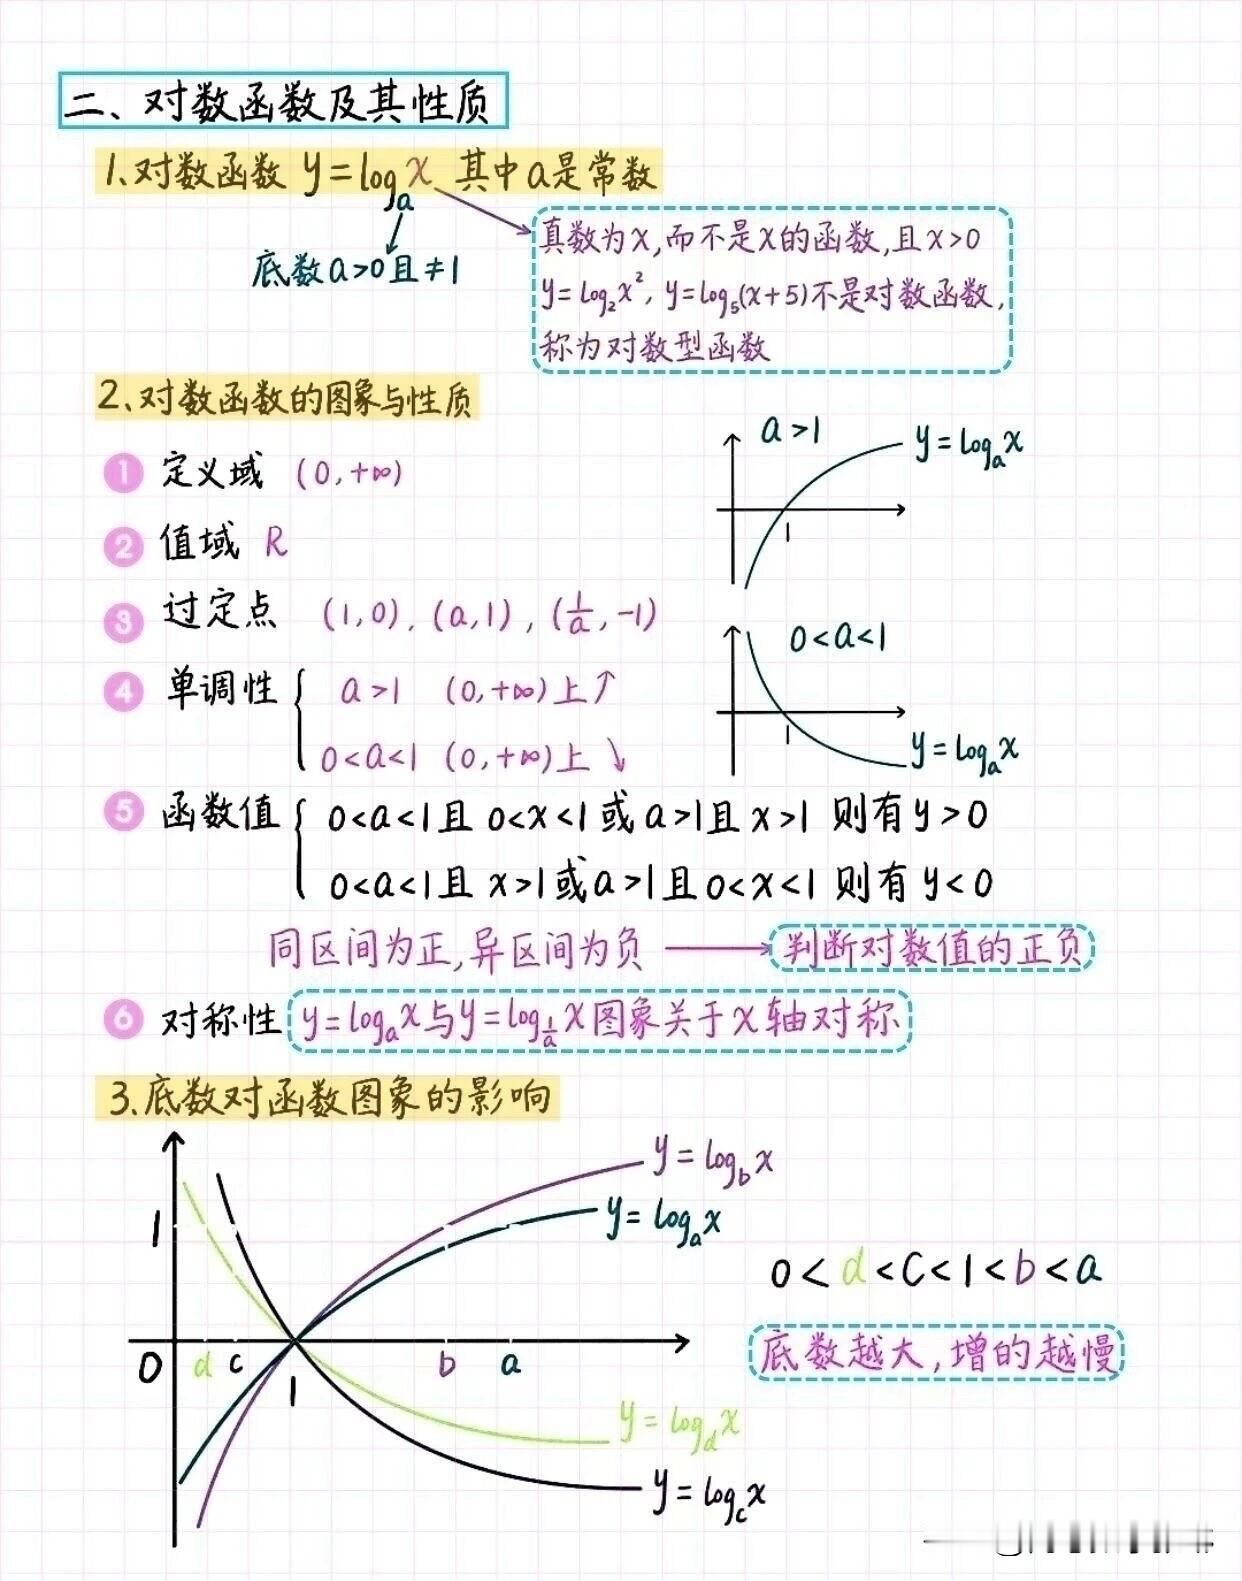 二、对数函数及其性质
1.对数函数 y=logₐx 其中a是常数
底数a>0且≠1
真数为x,而不是x的函数,且x>0
y=log₂x², y=log₅(x+5)不是对数函数,
称为对数型函数
2、对数函数的图象与性质
① 定义域 (0,+∞)
② 值域 R
③ 过定点 (1,0), (a,1), (1/a,-1)
④ 单调性 { a>1 (0,+∞)上↗
0<a<1 (0,+∞)上↘
a>1
y=logₐx
1
0<a<1
1
y=logₐx
⑤ 函数值 { 0<a<1且 0<x<1 或 a>1且 x>1 则有 y>0
0<a<1且 x>1 或 a>1且 0<x<1 则有 y<0
同区间为正,异区间为负 → 判断对数值的正负
⑥ 对称性 y=logₐx与y=log_{1/a}x图象关于x轴对称
3.底数对函数图象的影响
y=log_b x
y=logₐx
1
0<d<c<1<b<a
0 d c 1 b a
底数越大,增的越慢
y=log_d x
y=log_c x